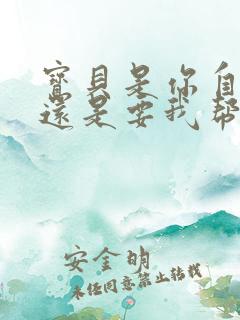 寶貝是你自
還是要我幫
安金明
未经同意禁止转载